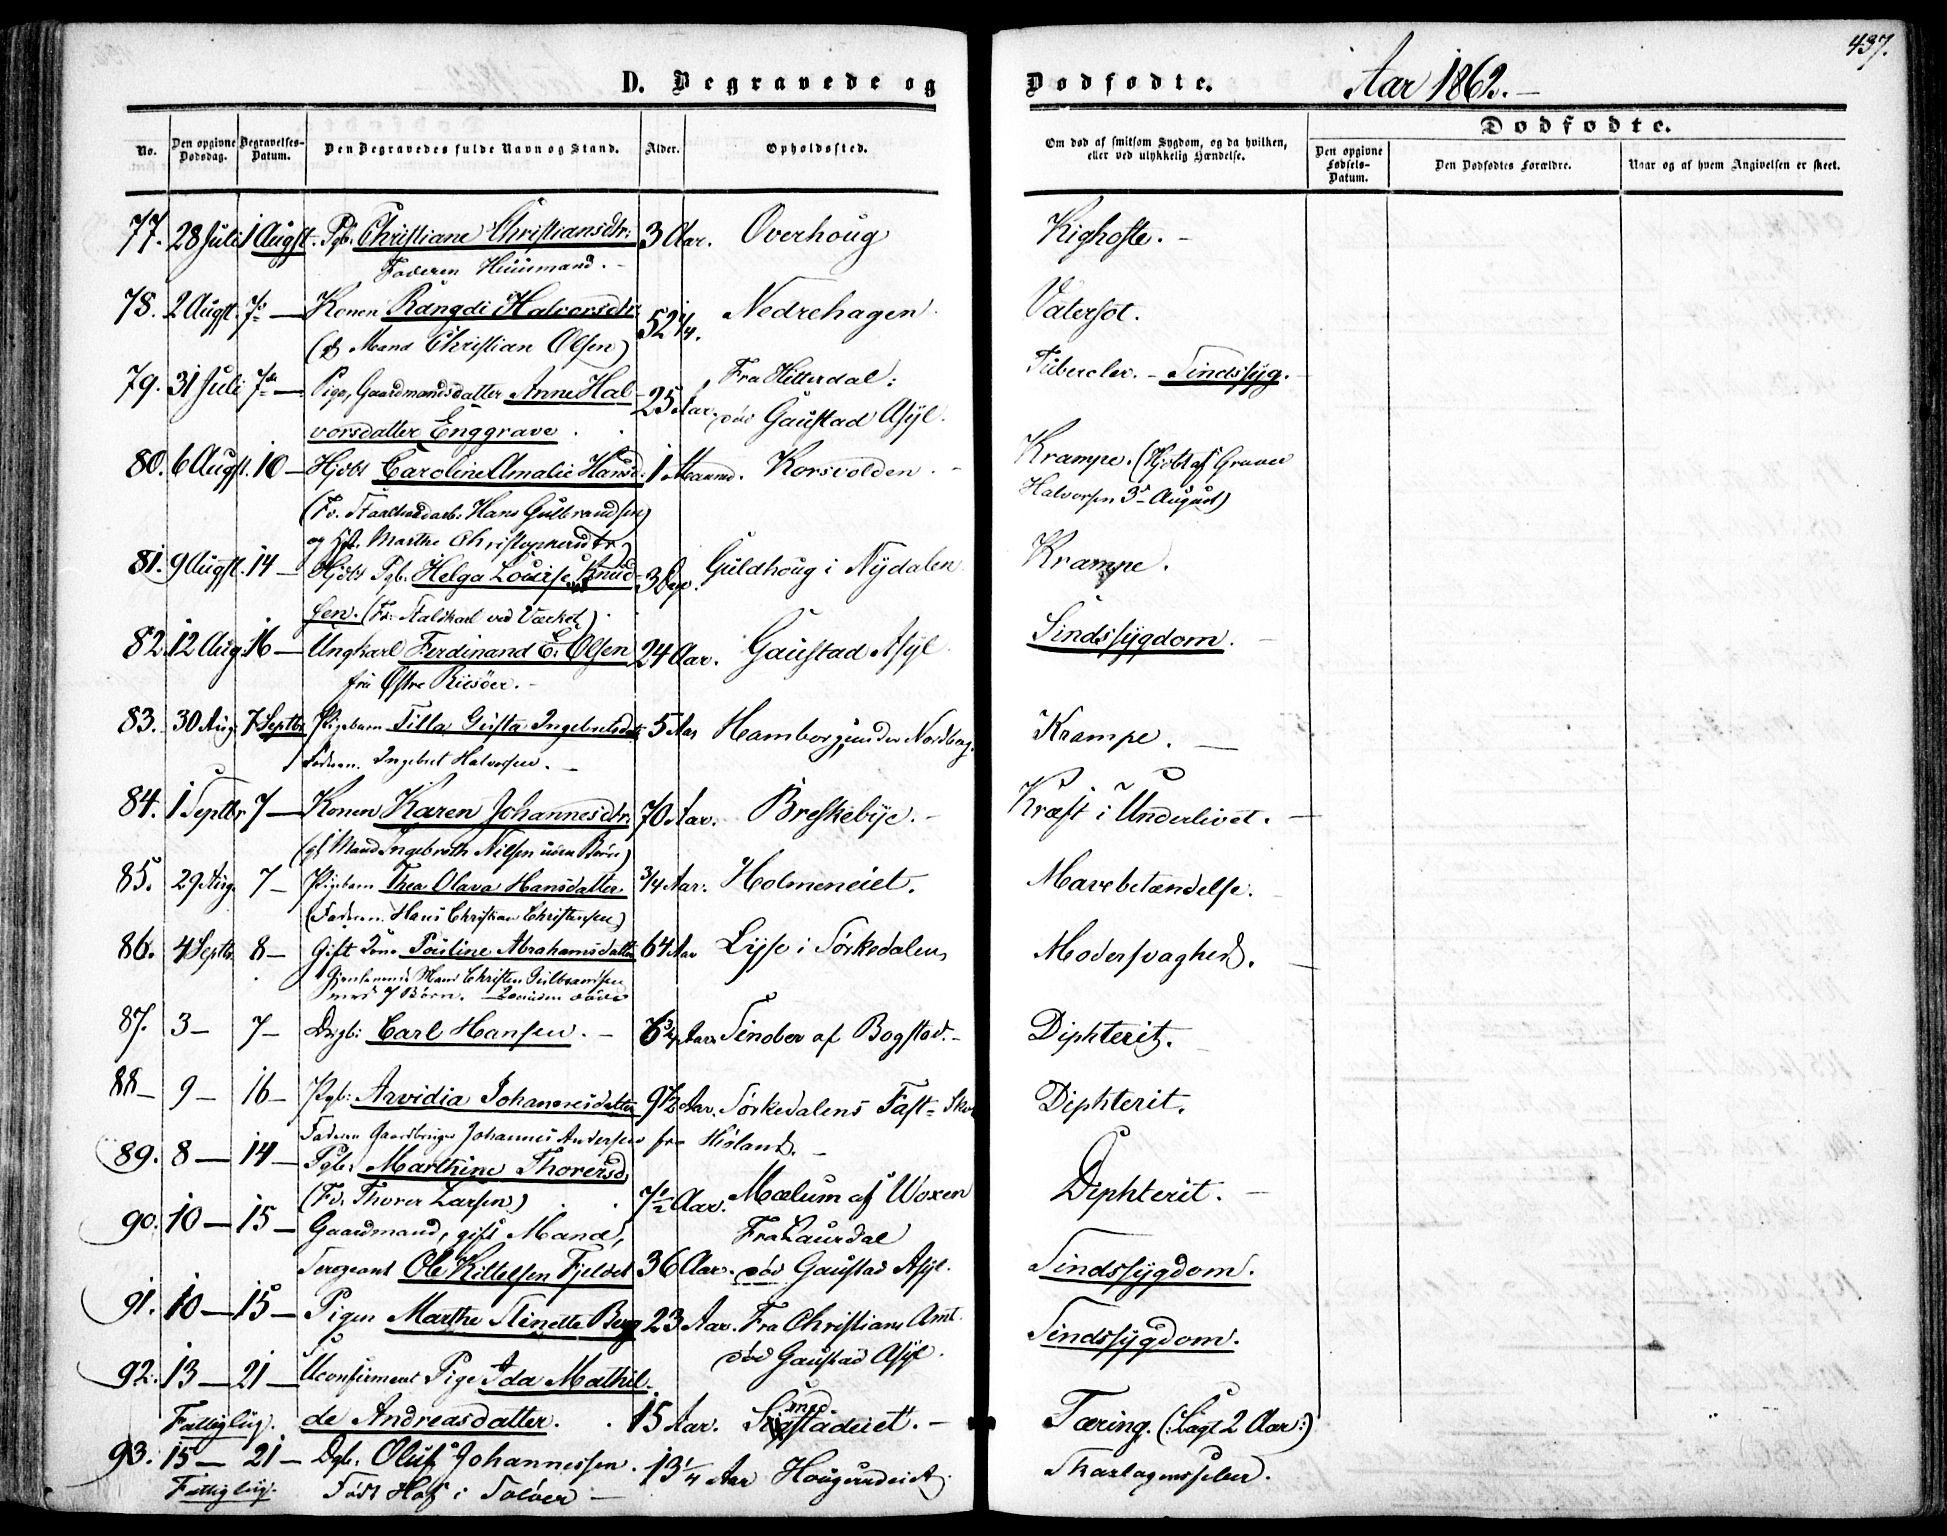 437.
D. Begravede og Dødfødte. Aar 1862.
Dødfødte.
No.
Den opgivne Dødsdag.
Begravelses-Datum.
Den Begravedes fulde Navn og Stand.
Alder.
Opholdssted.
Om død af smitsom Sygdom, og da hvilken, eller ved ulykkelig Hændelse.
Den opgivne Fødsels-Datum.
Den Dødfødtes Forældre.
Naar og af hvem Angivelsen er skeet.
77. 28 Juli 1 Augst. Pgb. Christiane Christiansdtr: 3 Aar. Overhoug Kighoste. -
Faderen Huusmand. -
78. 2 Augst. 7de — Konen Rangdi Halvorsdtr. 52 1/4. Nedrehagen. Vatersot.
(g. Mand Christian Olsen)
79. 31 Juli 7de — Pige, Gaardmandsdatter Anne Hal- 25 Aar. Fra Hitterdal: Tubercler. - Sindssyg.
vorsdatter Enggrave. død Gaustad Asyl.
80. 6 Augst. 10 — Hjdbt Caroline Amalie Hansd: 1 Maaned. Korsvolden. - Krampe. (Hjdbt af Graver
Halvorsen 3d August)
(Fv. Hans Gulbrandsen
og Marthe Christophersdtr)
81. 9 Augst. 14 — Hjdbt Pgb. Helga Lovise Knud- Guldhoug i Nydalen Krampe.
sen. (Fv. Staldkarl ved Værket)
82. 12 Aug. 16 — Ungkarl Ferdinand E. Olsen 24 Aar. Gaustad Asyl. Sindssygdom. -
fra Østre Riisöer. -
83. 30 Aug. 7 Septbr. Pigebarn Tilla Gusta Ingebretsdatr 5 Aar Hamborg, under Nordberg. Krampe. —
Faderen. Ingebret Halvorsen. -
84. 1 Septbr 7 — Konen Karen Johannesdtr: 70 Aar. Breskebye. - Kræft i Underlivet. -
(gl. Mand Ingebreth Nilsen uden Børn)
85. 29 Aug. 7 — Pigebarn Thea Olava Hansdatter 3/4 Aar. Holmeneiet. Mavebetændelse. -
(Faderen. Hans Christian Christensen)
86. 4 Septb. 8 — Gift Kone Pouline Abrahamsdatter 64 Aar Lysse i Sørkedalen, Modersvaghed. -
Gjenlevende Mand Christen Gulbrandsen
med 7 Børn. -
87. 3 — 7 — Drgb: Carl Hansen. - 6 3/4 Aar. Sinober af Bogstad. - Diphterit. -
88 — 9 — 16 — Pgb: Arvidia Johannesdatter 9 1/2 Aar. Sørkedalens Fast-Skole Diphterit.
Faderen Gaardbruger Johannes Andersen fra Høland. -
89. 8 — 14 — Pgb. Marthine Thorersd. 7 1/2 Aar. Mælum af Woxen Diphterit. -
(Fv. Thorer Larsen)
90. 10 — 15 — Gaardmand, gift Mand, Fra Laurdal
Sergeant Ole Kittelsen Fjeldet 36 Aar. død Gaustad Asyl. Sindssygdom.
91. 10 — 15 — Pigen Marthe Stinette Berg 23 Aar. Fra Christians Amt. Sindssygdom.
død Gaustad Asyl.
92. 13 — 21 — Uconfirmeret Pige Ida Mathil-
Fattiglig. de Andreasdatter. 15 Aar. Tæring. (: Lagt 2 Aar:)
93. 15 — 21 — Dgb. Oluf Johannessen. 13 1/4 Aar Hougerudeiet. Skarlagensfeber.
Fattiglig. Født Hof i Soløer -